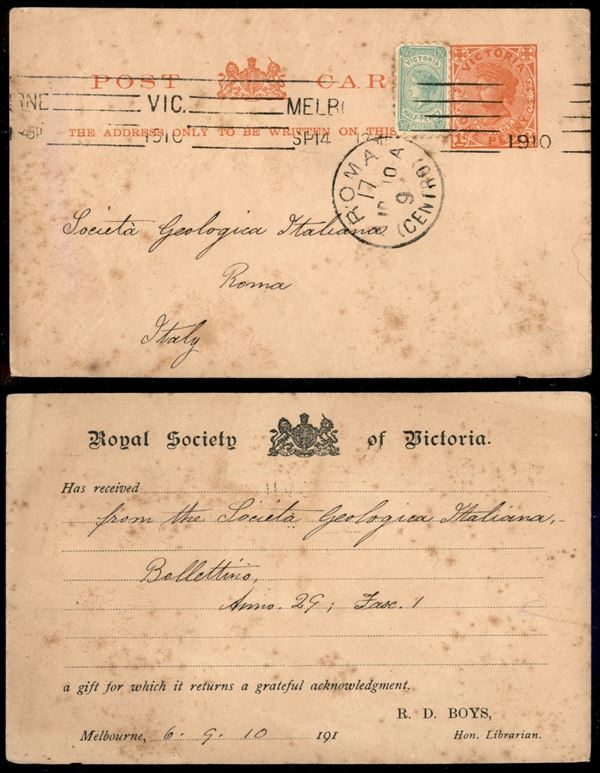 POST CAR
VICTORIA
VICTORIA
PENNY
VIC. MELB
THE ADDRESS ONLY TO BE WRITTEN ON THIS
1910 SP14 1910
ROMA (CENTRO)
17
9
Società Geologica Italiana
Roma
Italy
Royal Society of Victoria.
Has received
from the Società Geologica Italiana,
Bollettino,
Anno. 29; Fasc. 1
a gift for which it returns a grateful acknowledgment.
R. D. BOYS,
Melbourne, 6. 9. 10 191 Hon. Librarian.